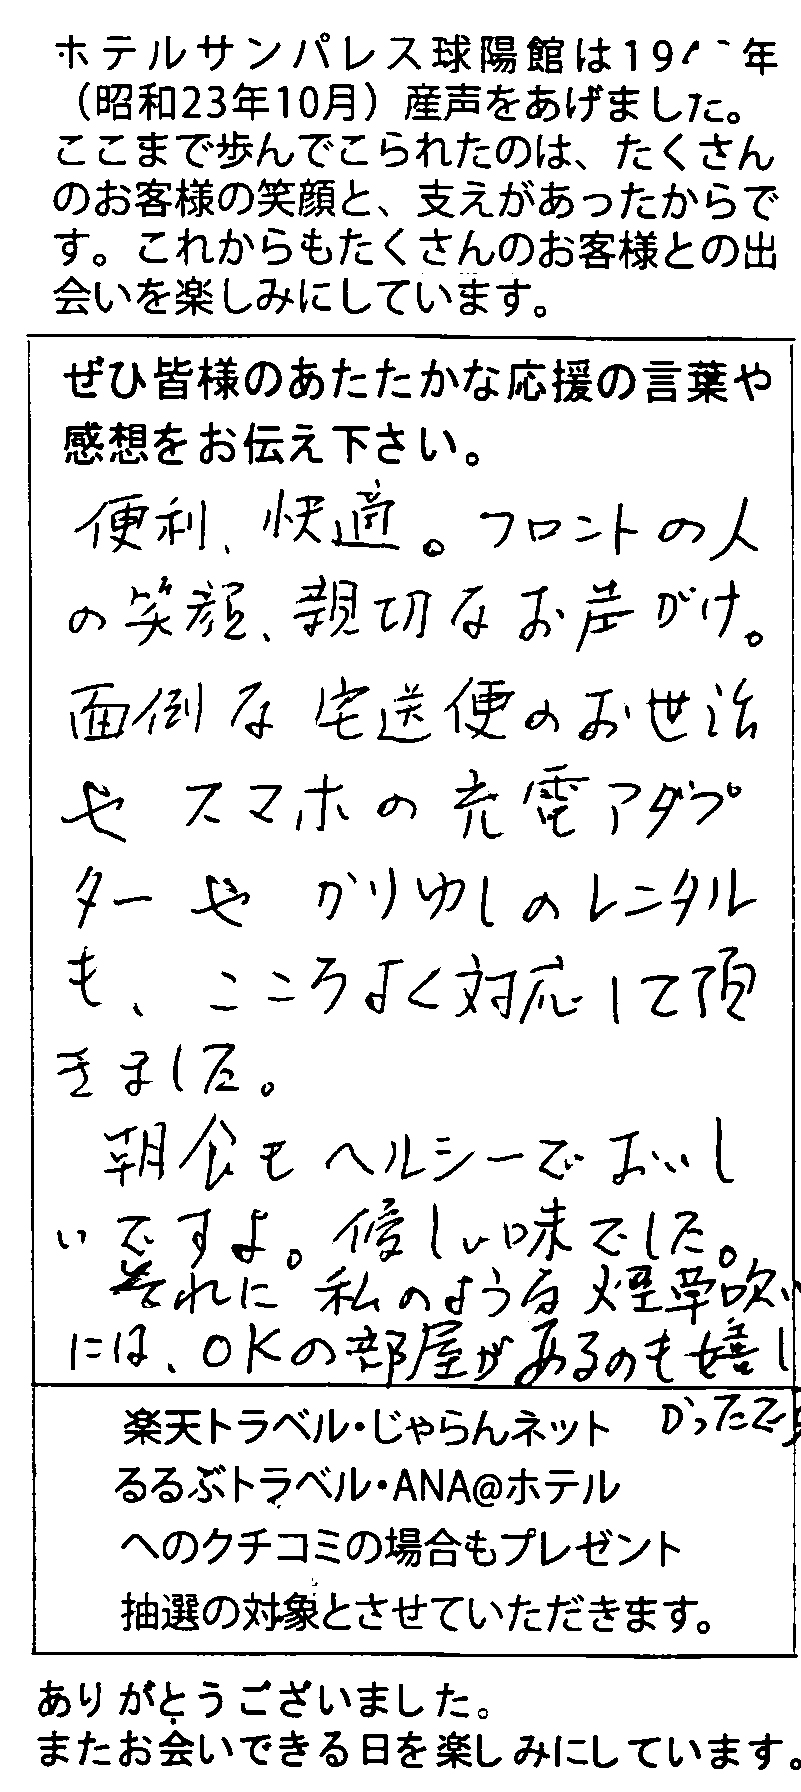 ホテルサンパレス球陽館は19 年
（昭和23年10月）産声をあげました。
ここまで歩んでこられたのは、たくさん
のお客様の笑顔と、支えがあったからで
す。これからもたくさんのお客様との出
会いを楽しみにしています。
ぜひ皆様のあたたかな応援の言葉や
感想をお伝え下さい。
便利、快適。フロントの人
の笑顔、親切なお声がけ。
面倒な宅送便のお世話
や スマホの充電アダプ
ターや かりゆしのレンタル
も、こころよく対応して頂
きました。
朝食もヘルシーでおいし
いですよ。優しい味でした。
それに 私のような煙草吸い
には、OKの部屋があるのも嬉し
かったです
楽天トラベル・じゃらんネット
るるぶトラベル・ANA@ホテル
へのクチコミの場合もプレゼント
抽選の対象とさせていただきます。
ありがとうございました。
またお会いできる日を楽しみにしています。